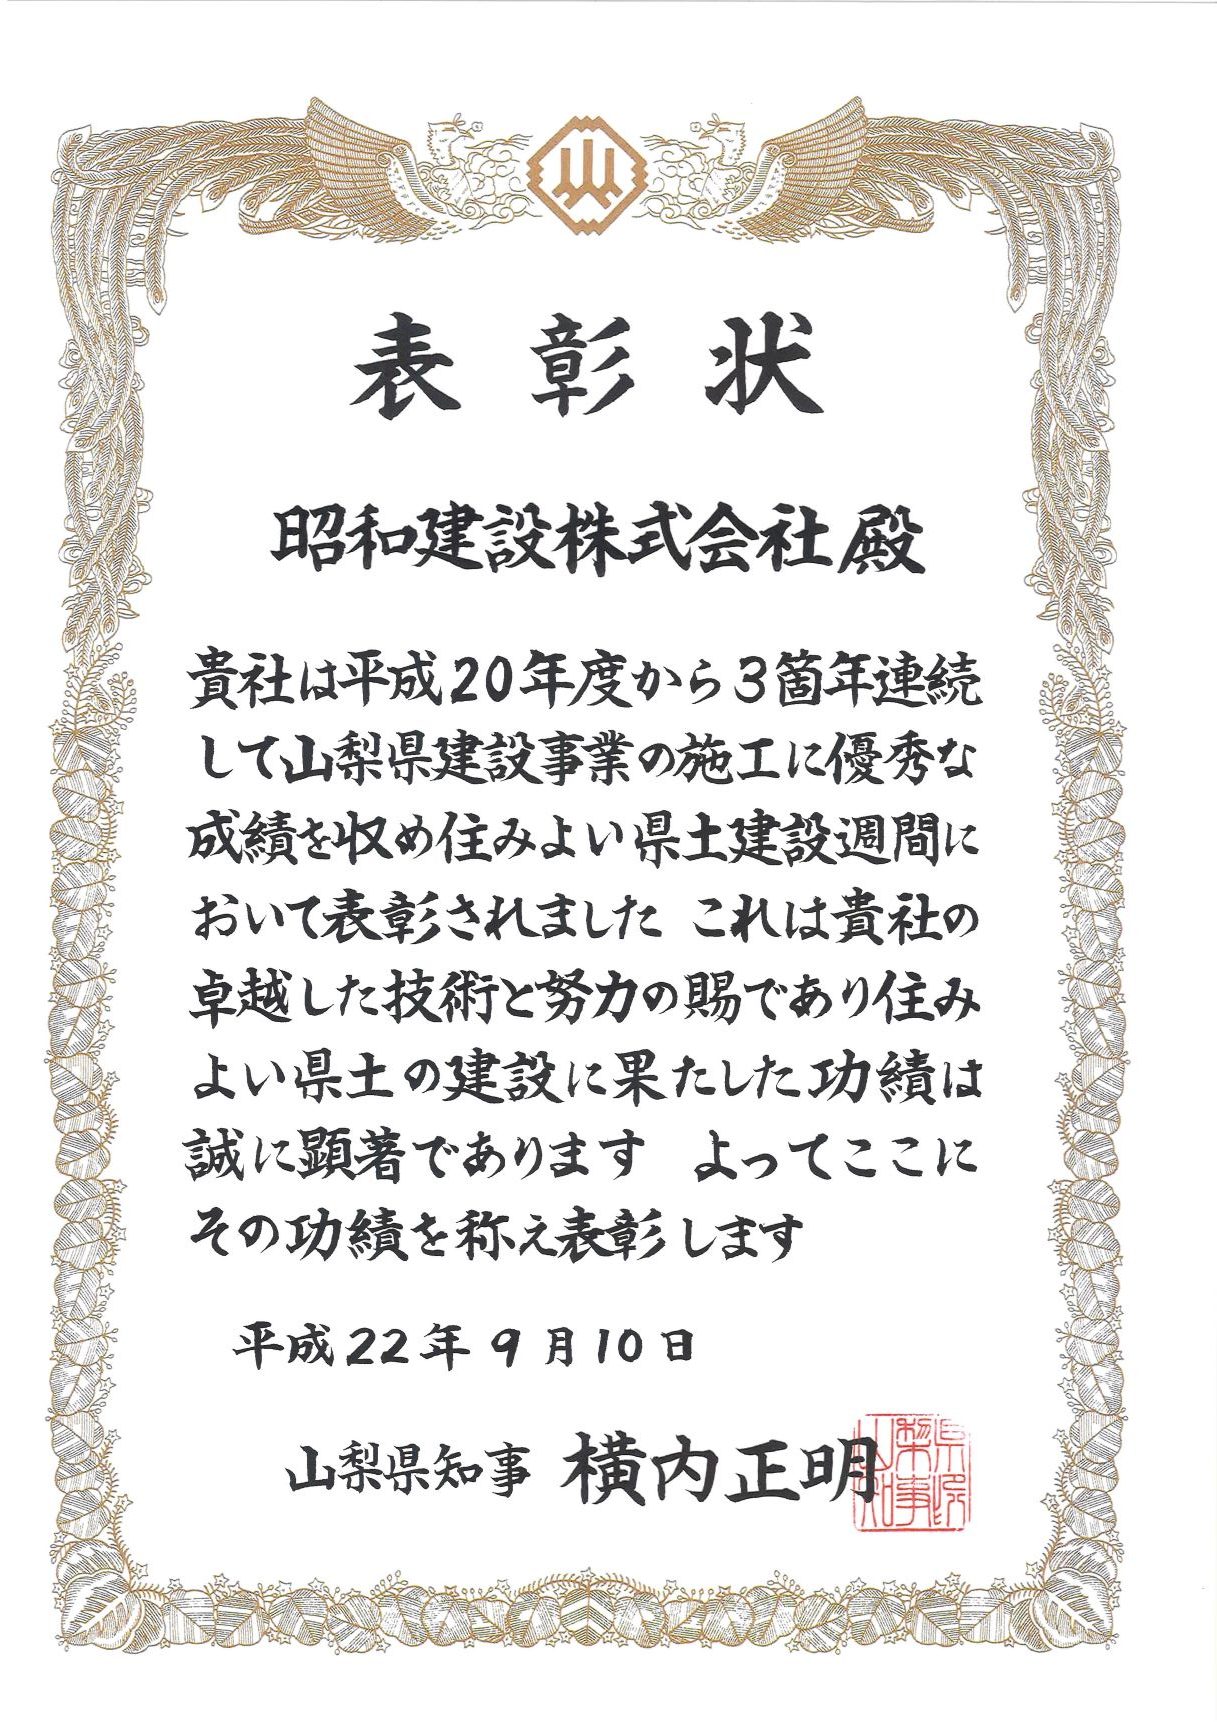 表彰状
昭和建設株式会社殿
貴社は平成20年度から3箇年連続
して山梨県建設事業の施工に優秀な
成績を収め住みよい県土建設週間に
おいて表彰されました これは貴社の
卓越した技術と努力の賜であり住み
よい県土の建設に果たした功績は
誠に顕著であります よってここに
その功績を称え表彰します
平成22年9月10日
山梨県知事 横内正明
山梨県知事印